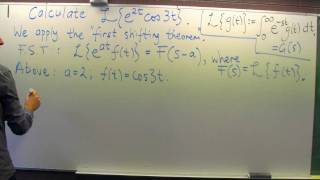 Calculate ℒ{e^{2t}cos3t}.
ℒ{g(t)} := ∫_0^∞ e^{-st}g(t)dt,
= G(s)
We apply the first shifting theorem.
F.S.T: ℒ{e^{at}f(t)} = F(s-a), where
F(s) = ℒ{f(t)}.
Above: a=2, f(t)=cos3t.